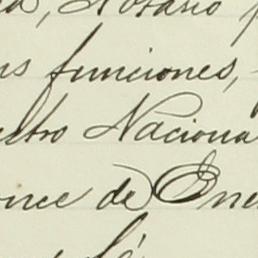 Notario
funciones,
Naciona
once de Ene